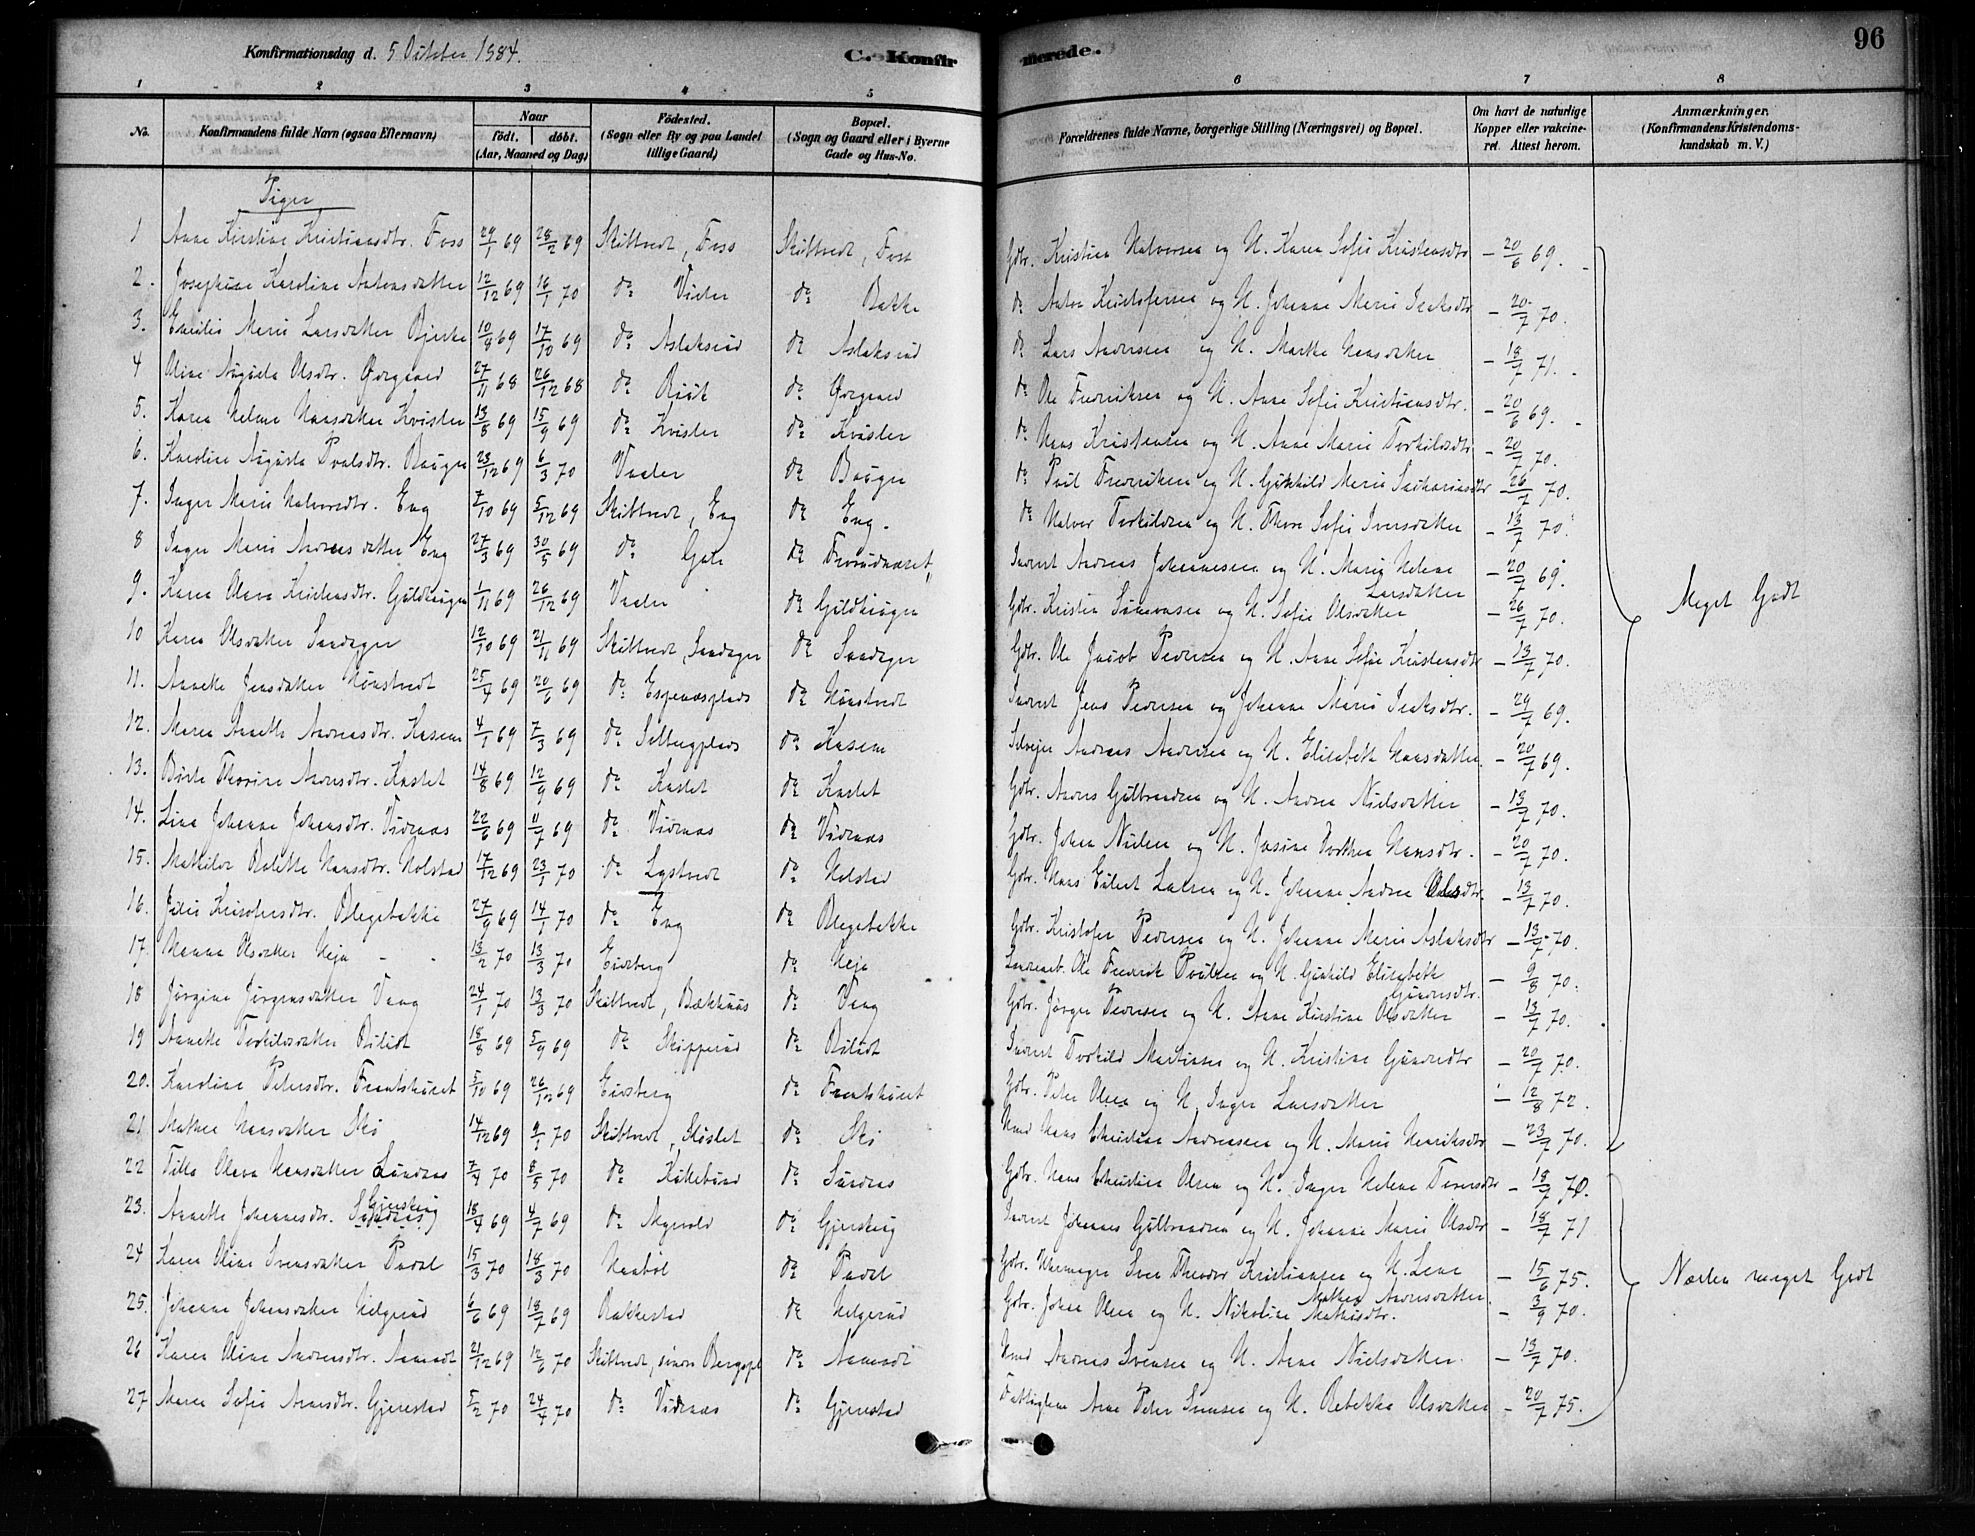 Konfirmationsdag d. 5 October 1884.
C. Konfirmerede.
96
1 2 3 4 5 6 7 8
No.
Konfirmandens fulde Navn (ogsaa Efternavn)
Naar
født. døbt.
(Aar, Maaned og Dag)
Fødested.
(Sogn eller By og paa Landet
tillige Gaard)
Bopæl.
(Sogn og Gaard eller i Byerne
Gade og Hus-No.
Forældrenes fulde Navne, borgerlige Stilling (Næringsvei) og Bopæl.
Om havt de naturlige
Kopper eller vakcine-
ret. Attest herom.
Anmærkninger.
(Konfirmandens Kristendoms-
kundskab m. V.)
Piger
1 Anne Kirstine Kristiansdtr. Foss 29/1 69 28/2 69 Skiptvedt, Foss Skiptvedt, Foss Gdbr. Kristian Halvorsen og H. Karen Sofie Kristensdtr – 20/6 69.
2. Josephine Karoline Antonsdatter 12/12 69 16/1 70 do Vister do Bakke do Anton Kristofersen og H. Johanne Marie Isaksdtr – 20/7 70.
3. Emilie Marie Larsdatter Bjerke 10/8 69 17/10 69 do Aslaksrud do Aslaksrud do Lars Andersen og H. Marthe Hansdatter – 18/7 71.
4 Oline Augusta Olsdtr. Øvregaard 27/11 68 26/12 68 do do do Ole Fredriksen og H. Anne Sofie Kristiansdtr. – 20/6 69.
5. Karen Helene Hansdatter Kvister 13/8 69 15/9 69 do Kvister do Kvister do Hans Kristensen og H. Anne Marie Torkildsdtr – 20/7 70.
6. Karoline Augusta Povlsdtr. Haugen 23/12 69 6/3 70 Vaaler do do Povl Fredriksen og H. Gunhild Marie Zachariasdtr – 26/7 70.
7. Inger Marie Halvorsdtr. Eng 7/10 69 5/12 69 Skiptvedt, Eng do Eng. do Halvor Torkildsen og H. Thore Sofie Iversdatter – 13/7 70.
8 Inger Marie Andreasdatter Eng 27/3 69 30/5 69 do do Inderst Andreas Johannesen og H. Marie Helene Larsdatter – 20/7 69.
9. Karen Olava Kristensdtr. Guldhaugen 1/11 69 26/12 69 Vaaler do Guldhaugen Gdbr. Kristen Simensen og H. Sofie Olsdatter – 26/7 70.
10 Karen Olsdatter Sandager 12/10 69 21/11 69 Skiptvedt, Sandager do Sandager Gdbr. Ole Jacob Pedersen og H. Anne Sofie Kristensdtr – 13/7 70.
11. Annette Jensdatter Hønstvedt 25/4 69 20/6 69 do Espenæsplads do Hønstvedt Inderst Jens Pedersen og Johanne Marie Isaksdtr. – 29/7 69.
12. Maren Annette Andreasdtr. Kasem 4/1 69 7/3 69 do Solbergplads do Kasem Selveier Andreas Andersen og H. Elisabeth Hansdatter – 20/7 69.
13. Berte Thorine Andersdtr. Kastet 14/8 69 12/9 69 do Kastet do Kastet Gdbr. Anders Gulbrandsen og H. Andrea Nielsdatter – 13/7 70.
14. Lina Johanne Johansdtr. Vidnæs 22/6 69 11/7 69 do Vidnæs do Vidnæs Gdbr. Johan Nielsen og H. Josine Dorthea Hansdtr. – 20/7 70.
15. Mathilde Hansdtr. Holstad 17/12 69 23/1 70 do Lystvedt do Holstad Gdbr. Hans Eilert Larsen og H. Johanne Andrea Olsdtr. – 13/7 70.
16. Julie Kristofersdtr. Blegebakke 27/9 69 14/1 70 do Eng do Blegebakke Gdbr. Kristofer Pedersen og H. Johanne Marie Aslaksdtr – 13/7 70.
17. Hanna Olsdatter Heja 13/2 70 13/3 70 Eidsberg do Heja Ole Fredrik Povlsen og H. Gunhild Elisabeth Gundersdtr. – 9/8 70.
18 Jørgine Jørgensdatter Vang 24/1 70 13/3 70 Skiptvedt, Bækhuus do Vang Gdbr. Jørgen Pedersen og H. Anne Kirstine Olsdatter – 13/7 70.
19 Annette Torkildsdatter 18/8 69 5/9 69 do Skipperud do Inderst Torkild Martinsen og H. Kristine Gundersdtr – 20/7 70.
20. Karoline Petersdtr. Frantshuset 5/10 69 26/12 69 Eidsberg do Frantshuset Gdbr. Peter Olsen og H. Inger Larsdatter – 12/8 72.
21 Mathea Hansdatter Ski 14/12 69 9/1 70 Skiptvedt, Slottet do Ski Hans Christian Andreasen og H. Marie Henriksdtr – 23/7 70.
Meget Godt
22 Tilla Olava Hansdatter Sundnæs 7/4 70 8/5 70 do do Sundnæs Gdbr. Hans Christian Olsen og H. Inger Helene Iversdtr – 18/7 70.
23. Annette Johannesdtr. Gjersteng 18/4 69 4/7 69 do do Gjersteng Inderst Johannes Gulbrandsen og H. Johanne Marie Olsdtr – 18/7 71
24 Karen Oline Svensdatter 15/3 70 18/3 70 Haabøl do Sven Theodor Kristiansen og H. Lene Mathea Andersdatter. – 15/6 75.
25. Johanne Johansdatter Helgerud 6/6 69 18/7 69 Rakkestad do Helgerud Gdbr. Johan Olsen og H. Nikoline Mathisdtr. – 3/9 70.
26 Karen Oline Andreasdtr. 21/12 69 12/6 70 Skiptvedt, do Andreas Svensen og H. Anne Nielsdatter. – 13/7 70.
27 Maren Sofie Arnesdtr. Gjerestad 5/2 70 24/4 70 do Vidnæs do Gjerestad Arne Peter og H. Rebekka Olsdatter – 20/7 75.
Næsten meget Godt